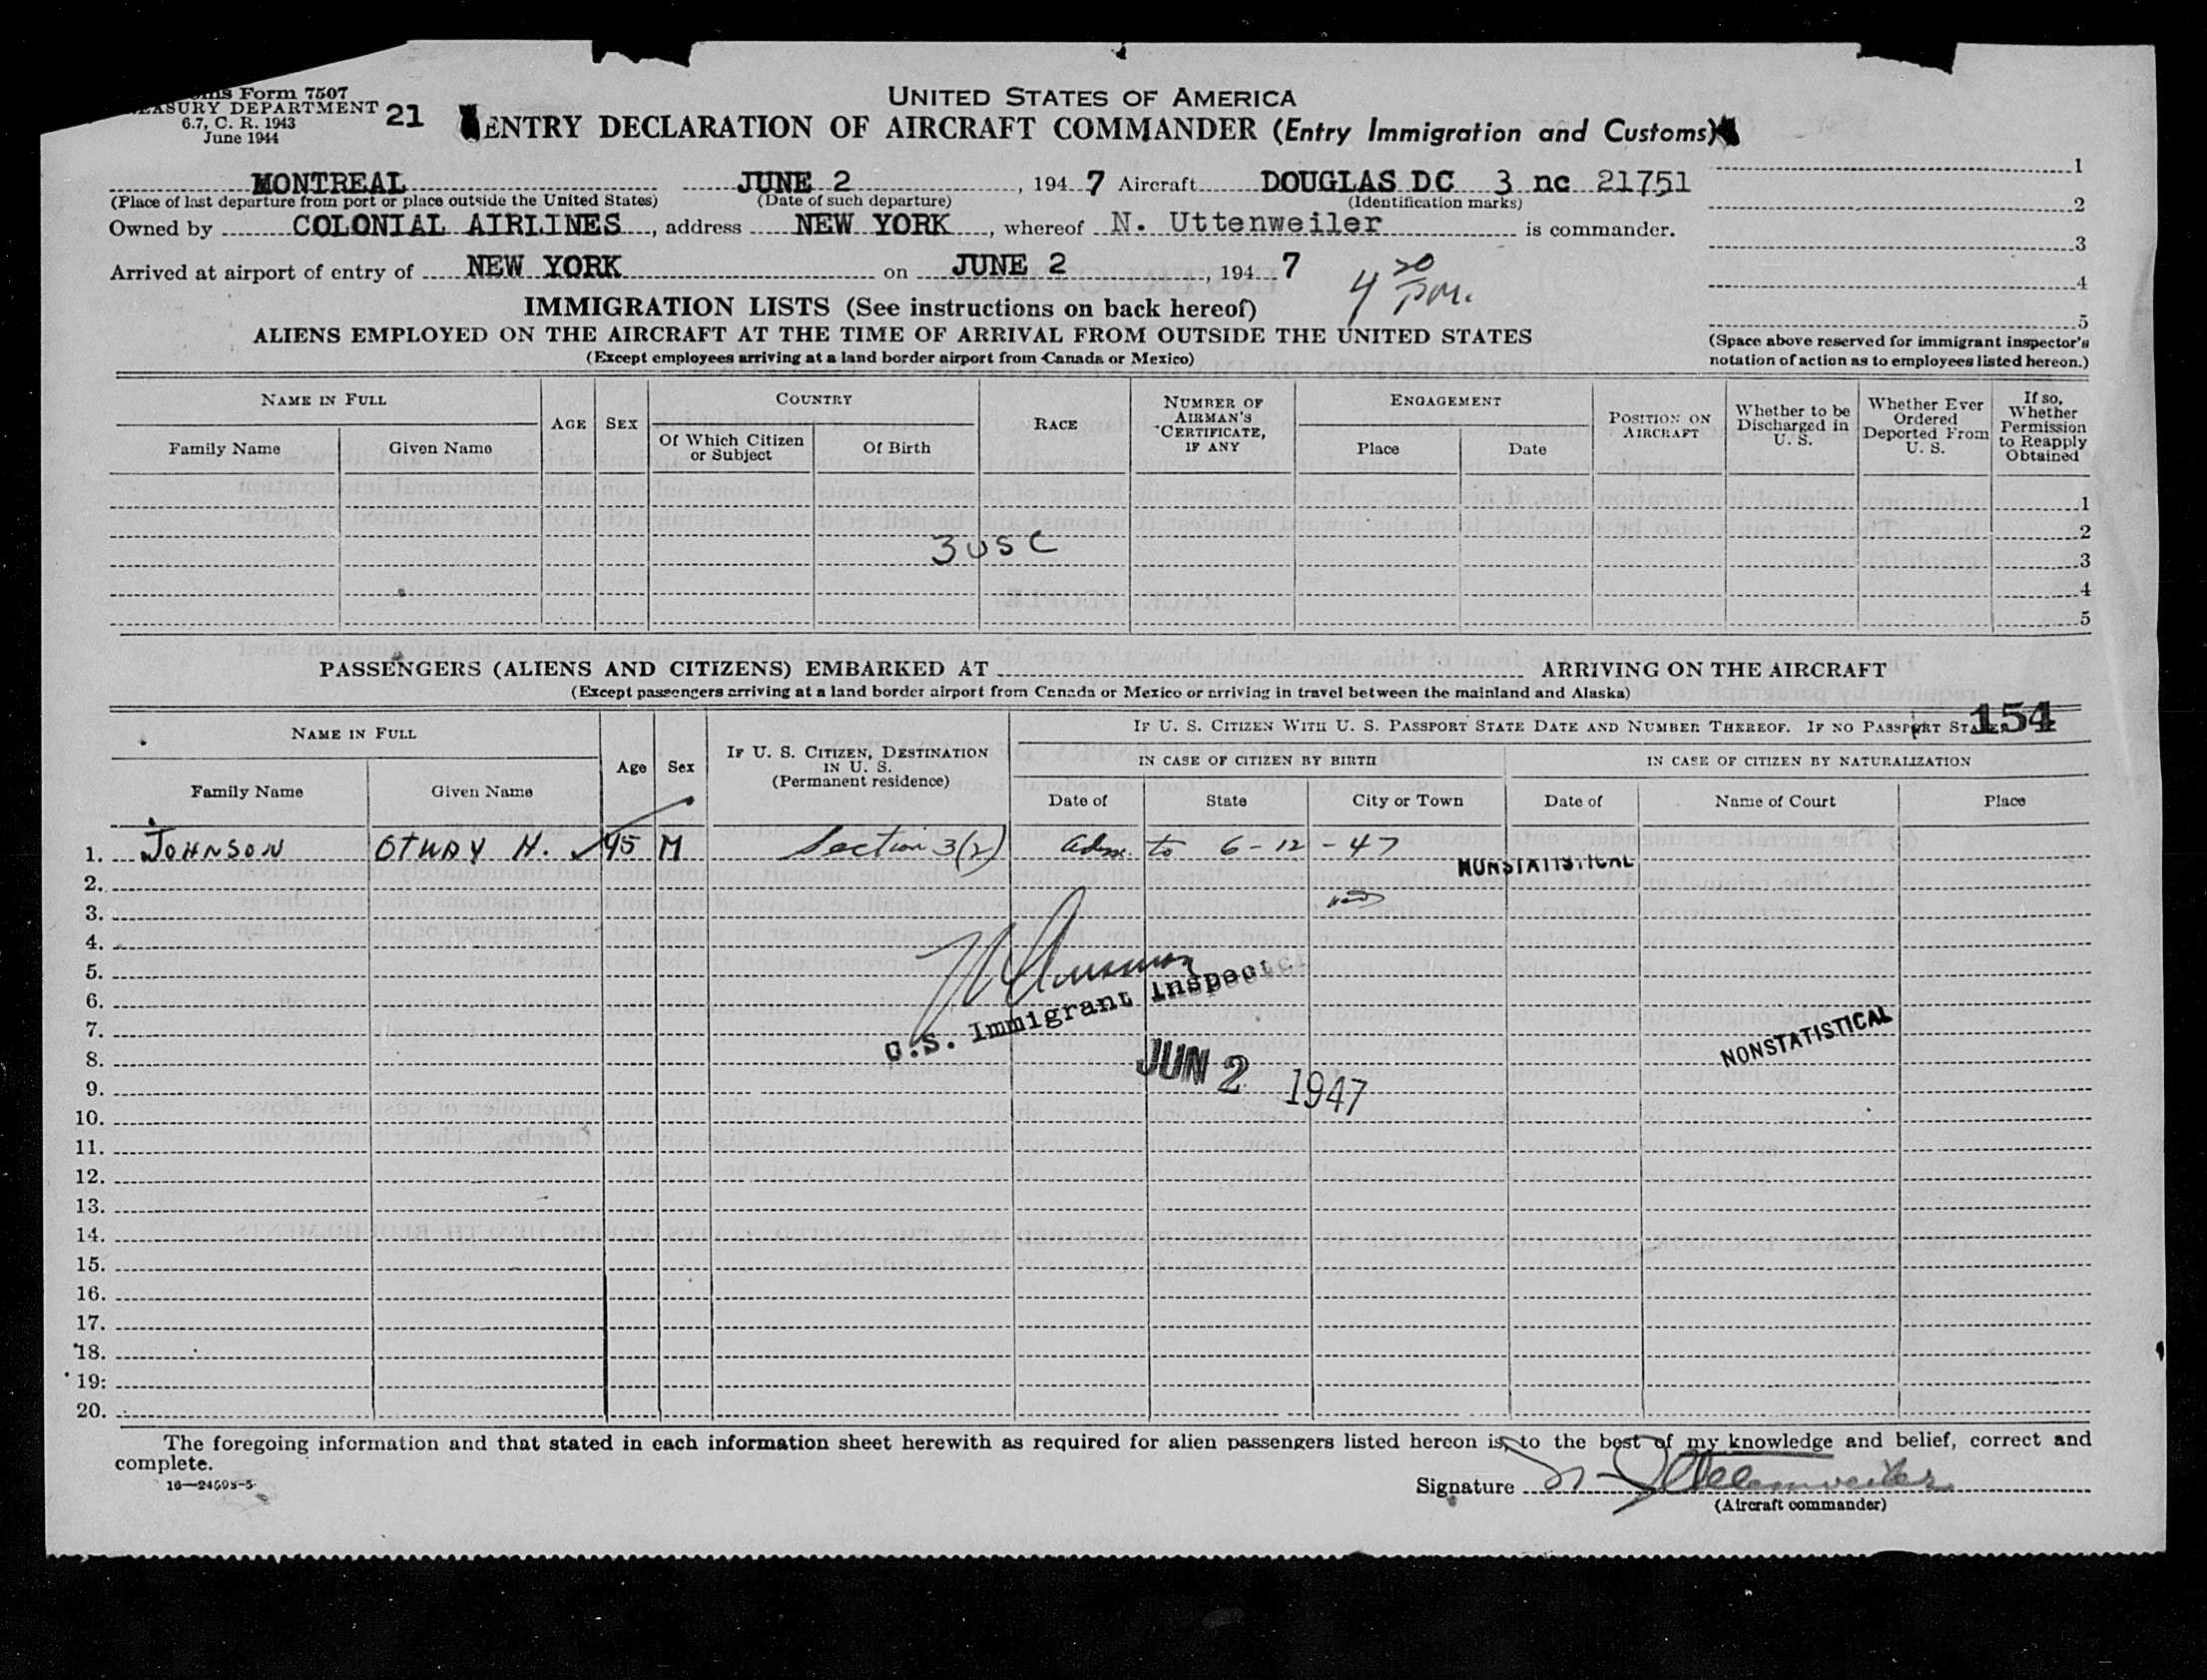 ms Form 7507
EASURY DEPARTMENT
6.7, C. R. 1943
June 1944
21
UNITED STATES OF AMERICA
ENTRY DECLARATION OF AIRCRAFT COMMANDER (Entry Immigration and Customs)
MONTREAL JUNE 2, 1947 Aircraft DOUGLAS DC 3 nc 21751
(Place of last departure from port or place outside the United States) (Date of such departure) (Identification marks)
Owned by COLONIAL AIRLINES, address NEW YORK, whereof N. Uttenweiler is commander.
Arrived at airport of entry of NEW YORK on JUNE 2, 1947 4 20 pm.
1
2
3
4
5
(Space above reserved for immigrant inspector's
notation of action as to employees listed hereon.)
IMMIGRATION LISTS (See instructions on back hereof)
ALIENS EMPLOYED ON THE AIRCRAFT AT THE TIME OF ARRIVAL FROM OUTSIDE THE UNITED STATES
(Except employees arriving at a land border airport from Canada or Mexico)
NAME IN FULL
Family Name
Given Name
AGE
SEX
COUNTRY
Of Which Citizen
or Subject
Of Birth
RACE
NUMBER OF
AIRMAN'S
CERTIFICATE,
IF ANY
ENGAGEMENT
Place
Date
POSITION ON
AIRCRAFT
Whether to be
Discharged in
U. S.
Whether Ever
Ordered
Deported From
U. S.
If so,
Whether
Permission
to Reapply
Obtained
1
2
3 USC
3
4
5
PASSENGERS (ALIENS AND CITIZENS) EMBARKED AT ARRIVING ON THE AIRCRAFT
(Except passengers arriving at a land border airport from Canada or Mexico or arriving in travel between the mainland and Alaska)
NAME IN FULL
Family Name
Given Name
Age
Sex
IF U. S. CITIZEN, DESTINATION
IN U. S.
(Permanent residence)
IF U. S. CITIZEN WITH U. S. PASSPORT STATE DATE AND NUMBER THEREOF. IF NO PASSPORT STATE
154
IN CASE OF CITIZEN BY BIRTH
Date of
State
City or Town
IN CASE OF CITIZEN BY NATURALIZATION
Date of
Name of Court
Place
1. JOHNSON OTWAY H. 45 M Section 3(2) adm. to 6-12-47
NONSTATISTICAL
2.
3.
4.
5.
6.
U.S. Immigrant Inspector
7.
NONSTATISTICAL
8.
JUN 2 1947
9.
10.
11.
12.
13.
14.
15.
16.
17.
18.
19.
20.
The foregoing information and that stated in each information sheet herewith as required for alien passengers listed hereon is, to the best of my knowledge and belief, correct and
complete.
16—24595-5
Signature N. Uttenweiler
(Aircraft commander)